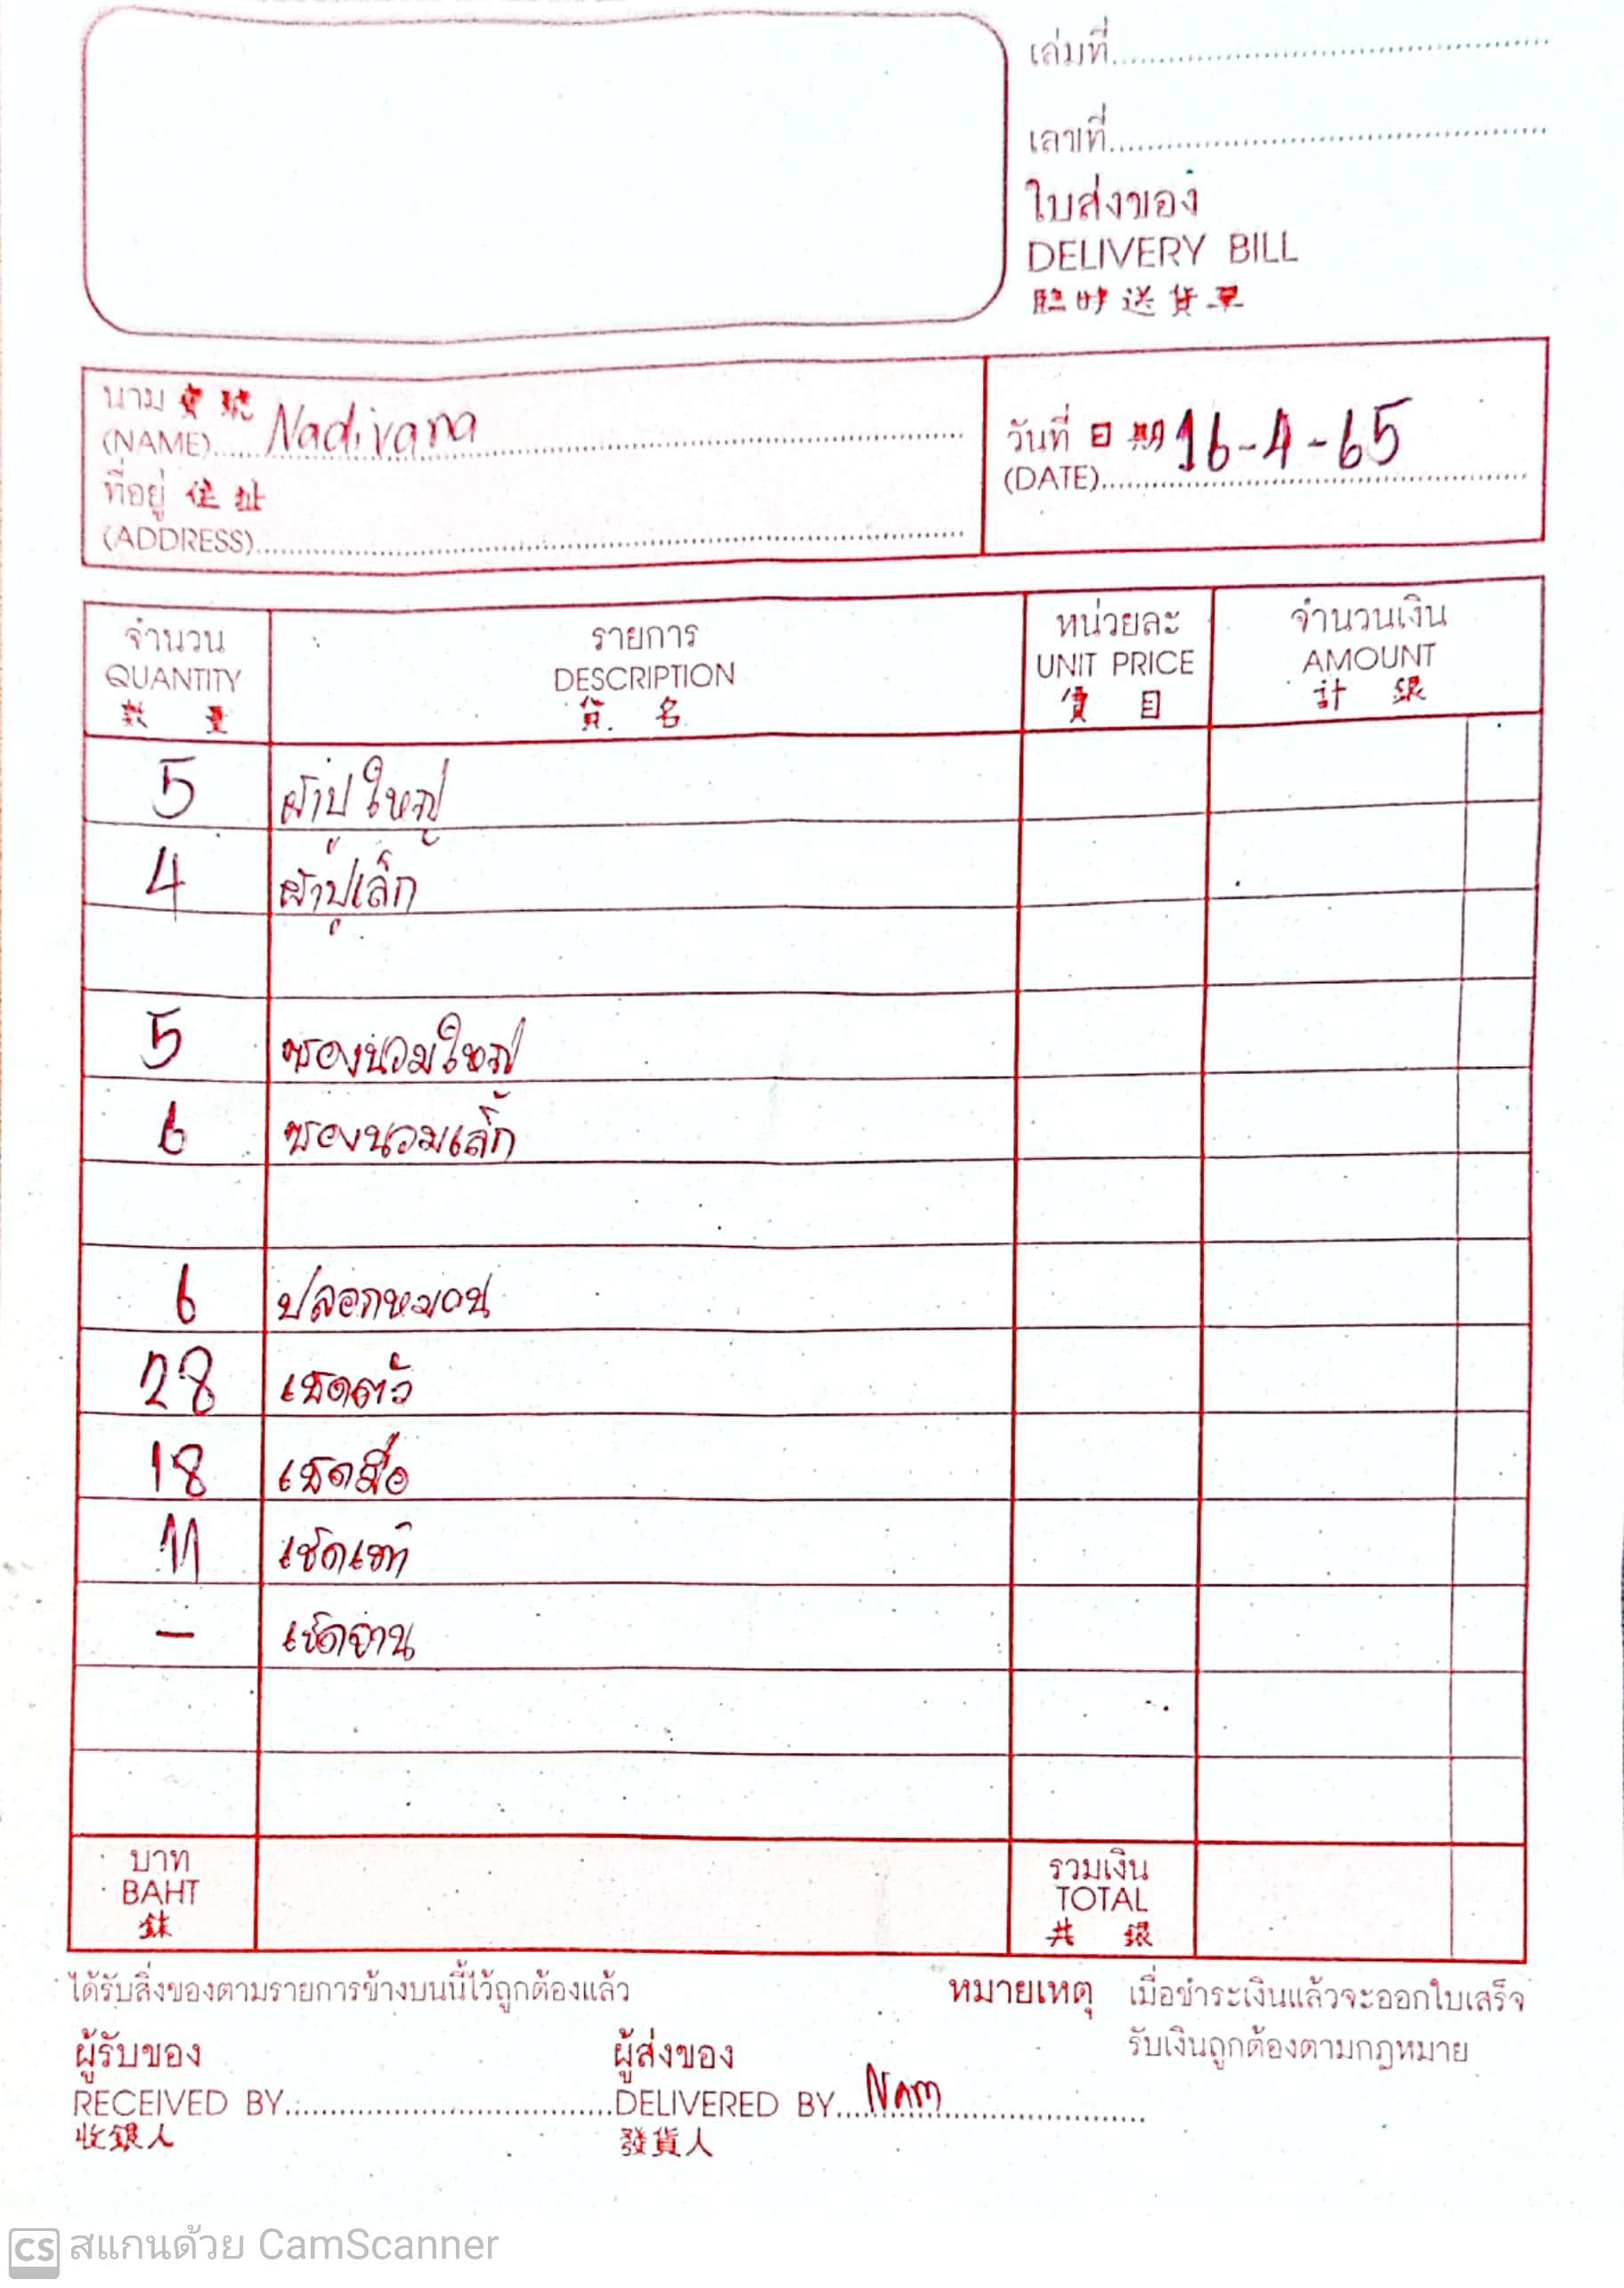 เล่มที่
เลขที่
ใบส่งของ
DELIVERY BILL
臨时送货單
นาม 寶號
(NAME) Nadivana
ที่อยู่ 住址
(ADDRESS)
วันที่ 日期 16-4-65
(DATE)
จำนวน รายการ หน่วยละ จำนวนเงิน
QUANTITY DESCRIPTION UNIT PRICE AMOUNT
數量 貨名 價目 計銀
5 ผ้าปูใหญ่
4 ผ้าปูเล็ก
5 ซองนวมใหญ่
6 ซองนวมเล็ก
6 ปลอกหมอน
28 เช็ดตัว
18 เช็ดมือ
11 เช็ดเท้า
– เช็ดจาน
บาท รวมเงิน
BAHT TOTAL
銖 共銀
ได้รับสิ่งของตามรายการข้างบนนี้ไว้ถูกต้องแล้ว
หมายเหตุ เมื่อชำระเงินแล้วจะออกใบเสร็จ
รับเงินถูกต้องตามกฎหมาย
ผู้รับของ ผู้ส่งของ
RECEIVED BY DELIVERED BY Nam
收銀人 發貨人
CS สแกนด้วย CamScanner